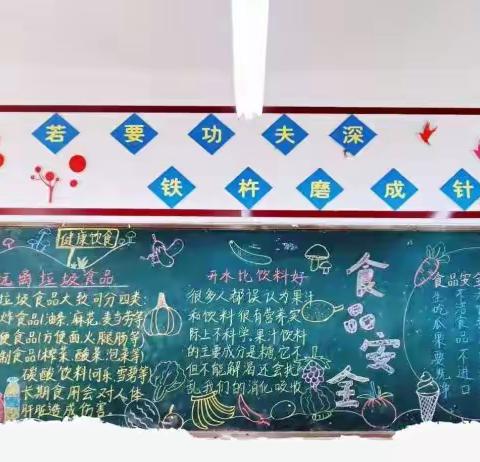 若要功夫深
铁杵磨成针
健康饮食
远离垃圾食品
垃圾食品大致可分四类:
炸食品(油条、麻花、麦当劳等)
便食品(方便面、火腿肠等
制食品(榨菜、酸菜、泡菜等)
碳酸饮料(可乐、雪碧等)
长期食用会对人体
肝脏造成伤害
开水比饮料好
很多人都误认为果汁
和饮料很有营养实
际上不科学,果汁饮料
的主要成分是糖,它不
但不能解渴还会扰
乱我们的消化吸收
食品安全
食品安全
不洁食品不进口
生吃瓜果要洗净